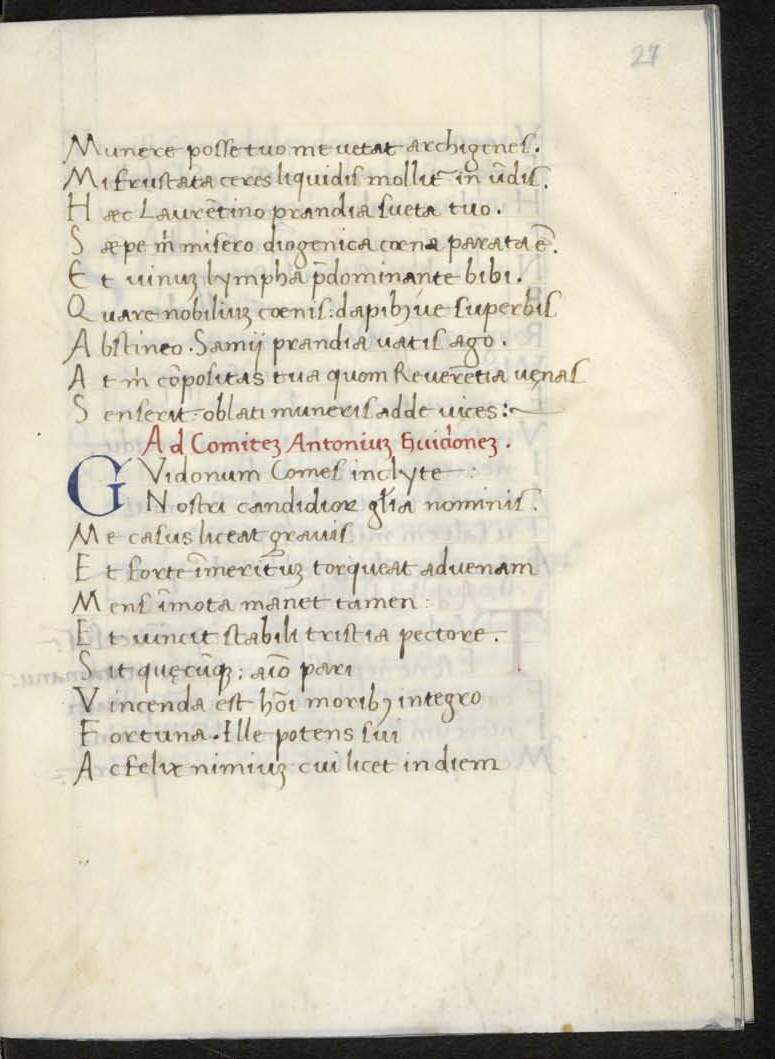 27
Munere posse tuo me uetat archigenes.
Mi frustata ceres liquidis mollit͛ in ūdis.
Haec Laurētino prandia sueta tuo.
Saepe m̄ misero diogenica coena parata ē.
Et uinuꝫ lympha p̄dominante bibi.
Quare nobiliuꝫ coenis: dapibꝫ ue superbis
Abstineo. Samij prandia uatis ago.
At m̄ cōpositas tua quom Reuerētia uenas
Senserit: oblati muneris adde uices:~
Ad Comiteꝫ Antoniuꝫ Guidoneꝫ.
GVidonum Comes inclyte:
Nostri candidior gl̄ia nominis.
Me casus liceat grauis
Et forte īmerituꝫ torqueat aduenam
Mens īmota manet tamen:
Et uincit stabili tristia pectore.
Sit quęcūqꝫ; aīo pari
Vincenda est hōi moribꝫ integro
Fortuna. Ille potens sui
Ac felix nimiuꝫ cui licet in diem